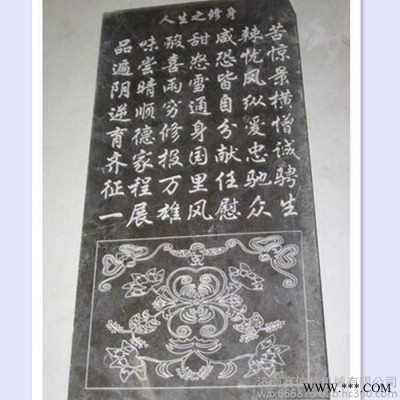 人生之修身
品味酸甜咸辣苦
遍尝喜怒恐忧惊
阴晴雨雪皆风景
逆顺穷通自纵横
育德修身分爱憎
齐家报国献忠诚
征程万里任驰骋
一展雄风慰众生
械有限公司
www.***.com